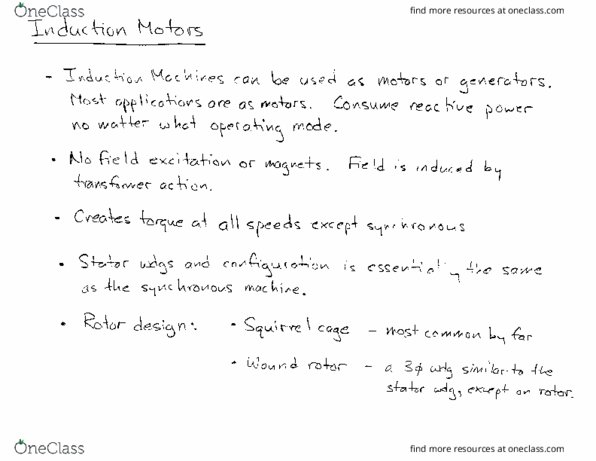 OneClass
find more resources at oneclass.com
Induction Motors
- Induction Machines can be used as motors or generators.
Most applications are as motors. Consume reactive power
no matter what operating mode.
• No field excitation or magnets. Field is induced by
transformer action.
- Creates torque at all speeds except synchronous
• Stator wdgs and configuration is essentially the same
as the synchronous machine.
• Rotor design: • Squirrel cage - most common by far
• Wound rotor - a 3ϕ wdg similar to the
stator wdg, except on rotor.
OneClass
find more resources at oneclass.com